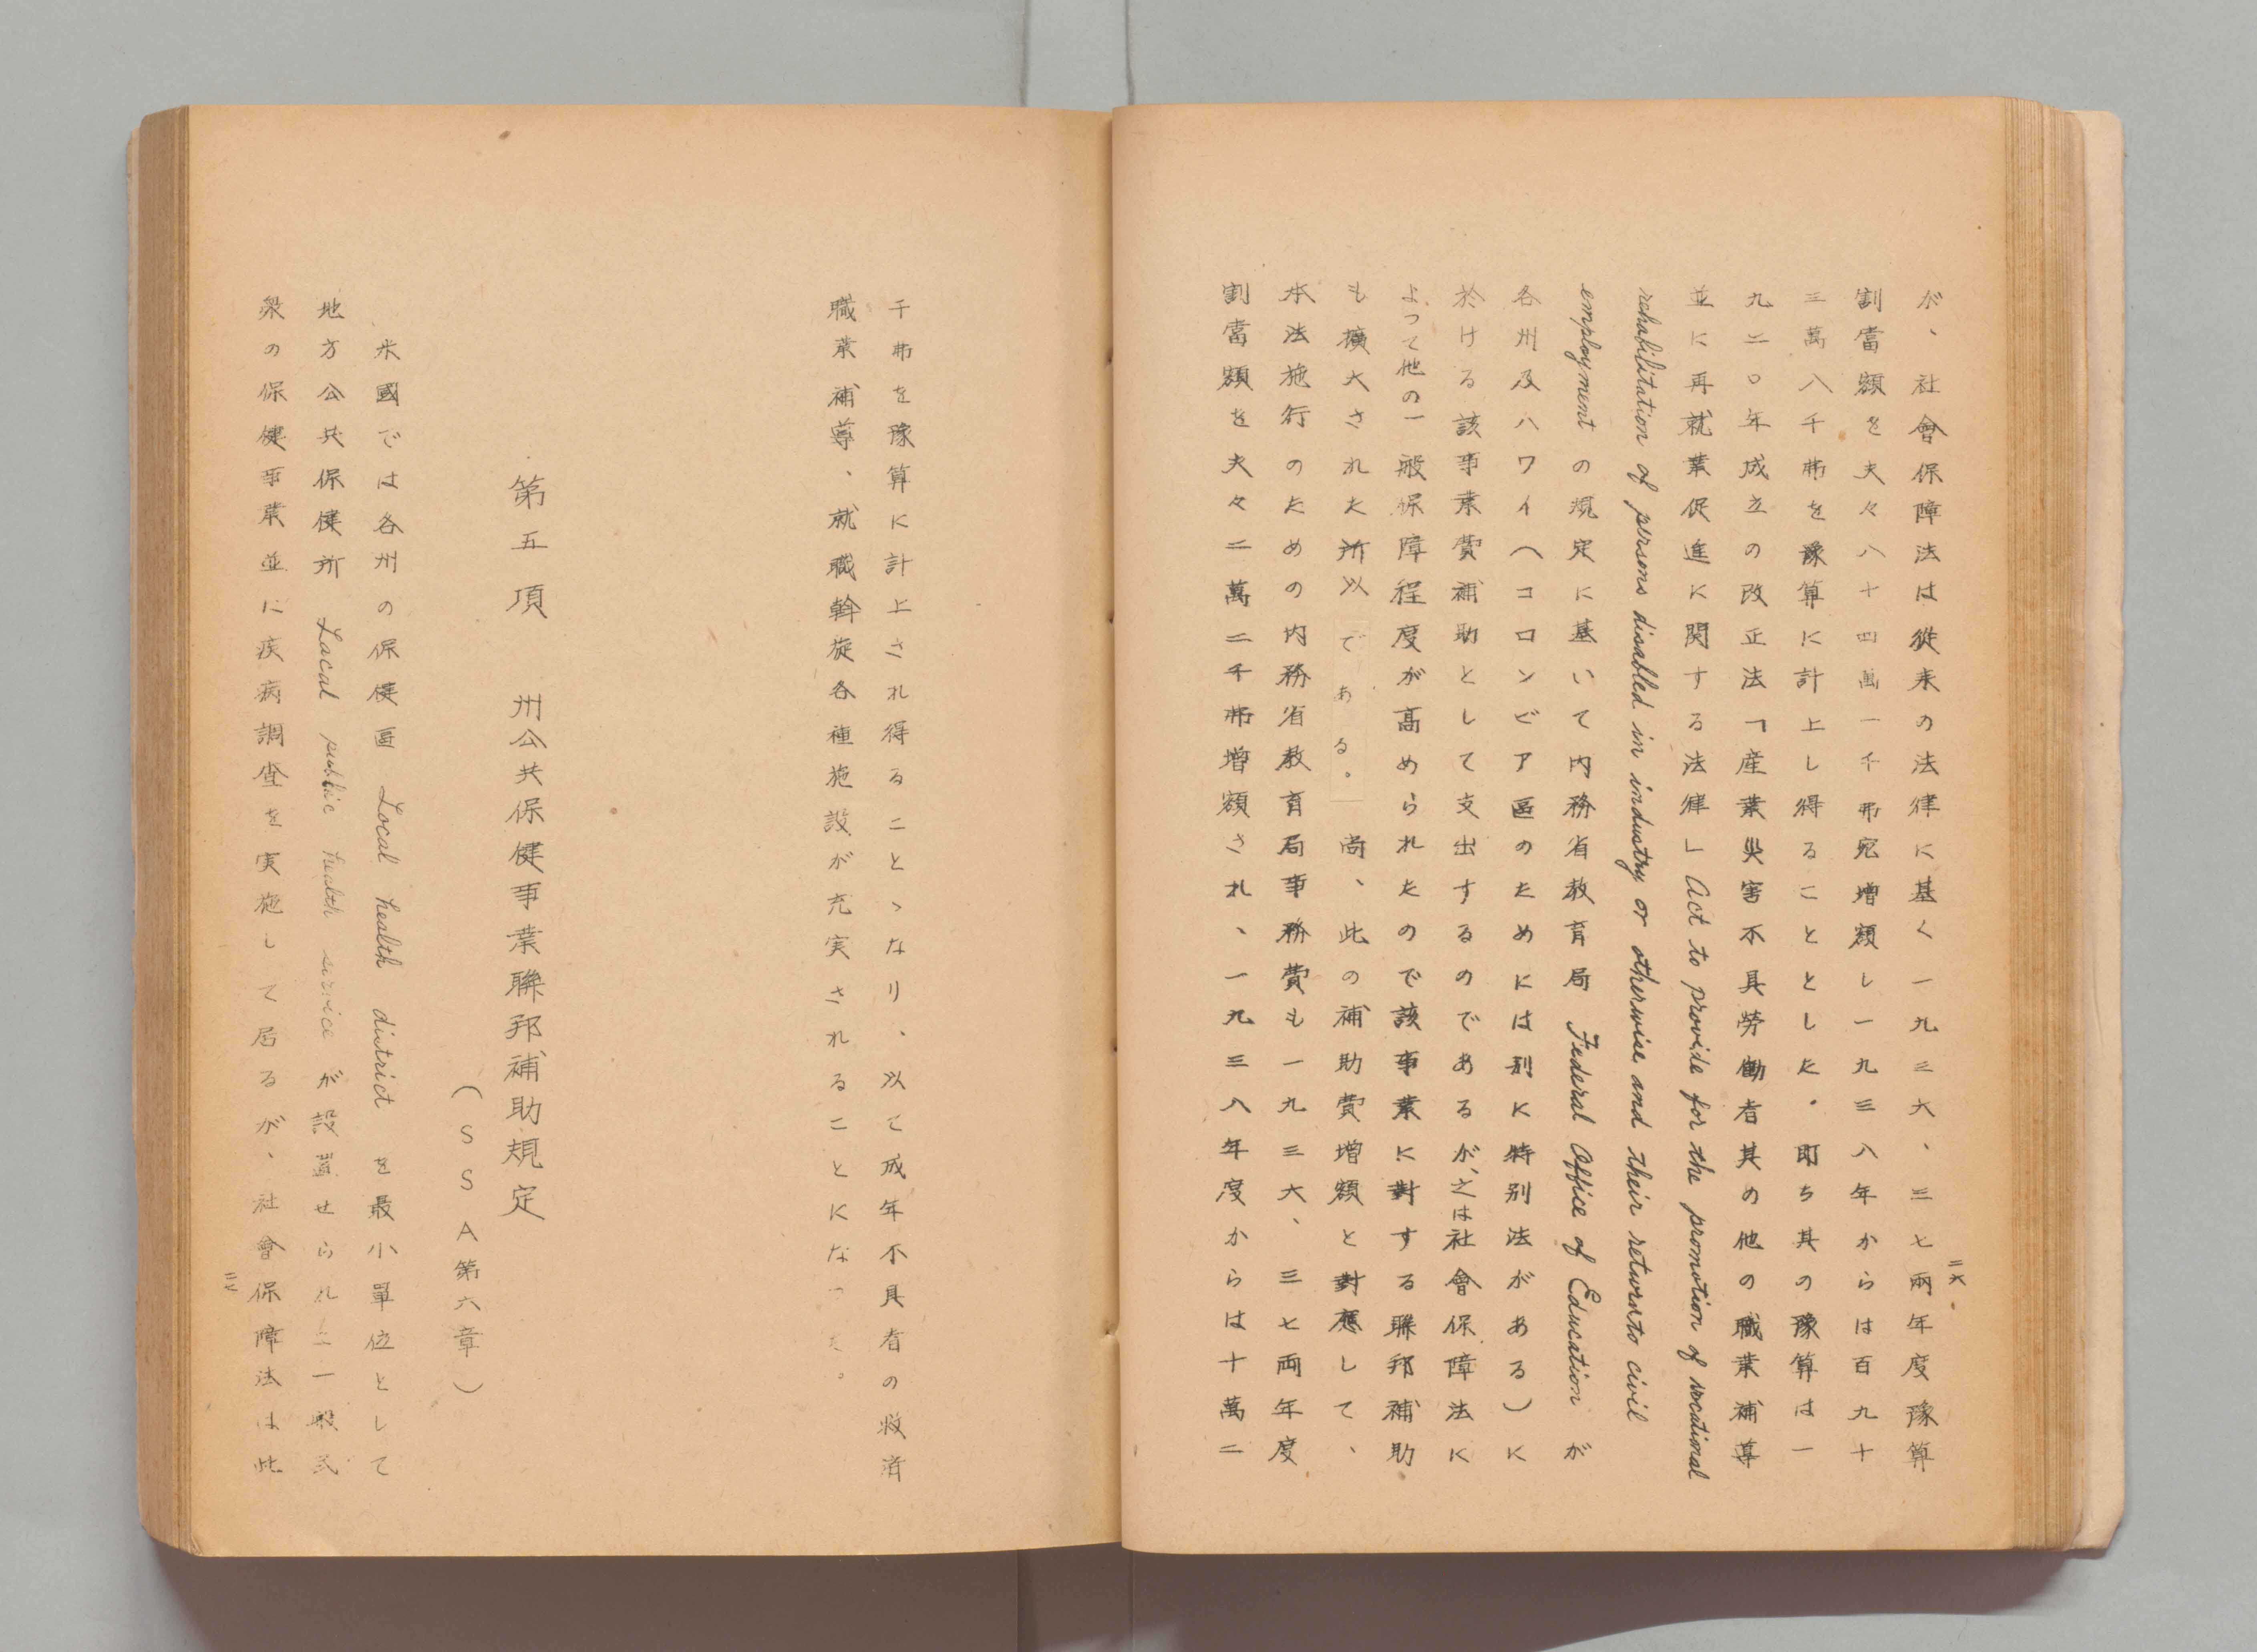 が、社會保障法は從来の法律に基く一九三六、三七兩年度豫算
割當額を夫々八十四萬一千弗宛増額し一九三八年からは百九十
三萬八千弗を豫算に計上し得ることとした。即ち其の豫算は一
九二〇年成立の改正法「産業災害不具勞働者其の他の職業補導
並に再就業促進に関する法律」Act to provide for the promotion of vocational
rehabilitation of persons disabled in industry or otherwise and their return to civil
employment の規定に基いて内務省教育局 Federal Office of Education が
各州及ハワイ(コロンビア區のためには別に特別法がある)に
於ける該事業費補助として支出するのであるが、之は社會保障法に
よって他の一般保障程度が高められたので該事業に對する聯邦補助
も擴大された所以である。尚、此の補助費増額と對應して、
本法施行のための内務省教育局事務費も一九三六、三七両年度
割當額を夫々二萬二千弗増額され、一九三八年度からは十萬二
二六
千弗を豫算に計上され得ることゝなり、以て成年不具者の救済
職業補導、就職斡旋各種施設が充実されることになった。
第五項 州公共保健事業聯邦補助規定
(SSA第六章)
米國では各州の保健區 Local health district を最小單位として
地方公共保健所 Local public health service が設置せられ一般民
衆の保健事業並に疾病調査を実施して居るが、社會保障法は此
二七